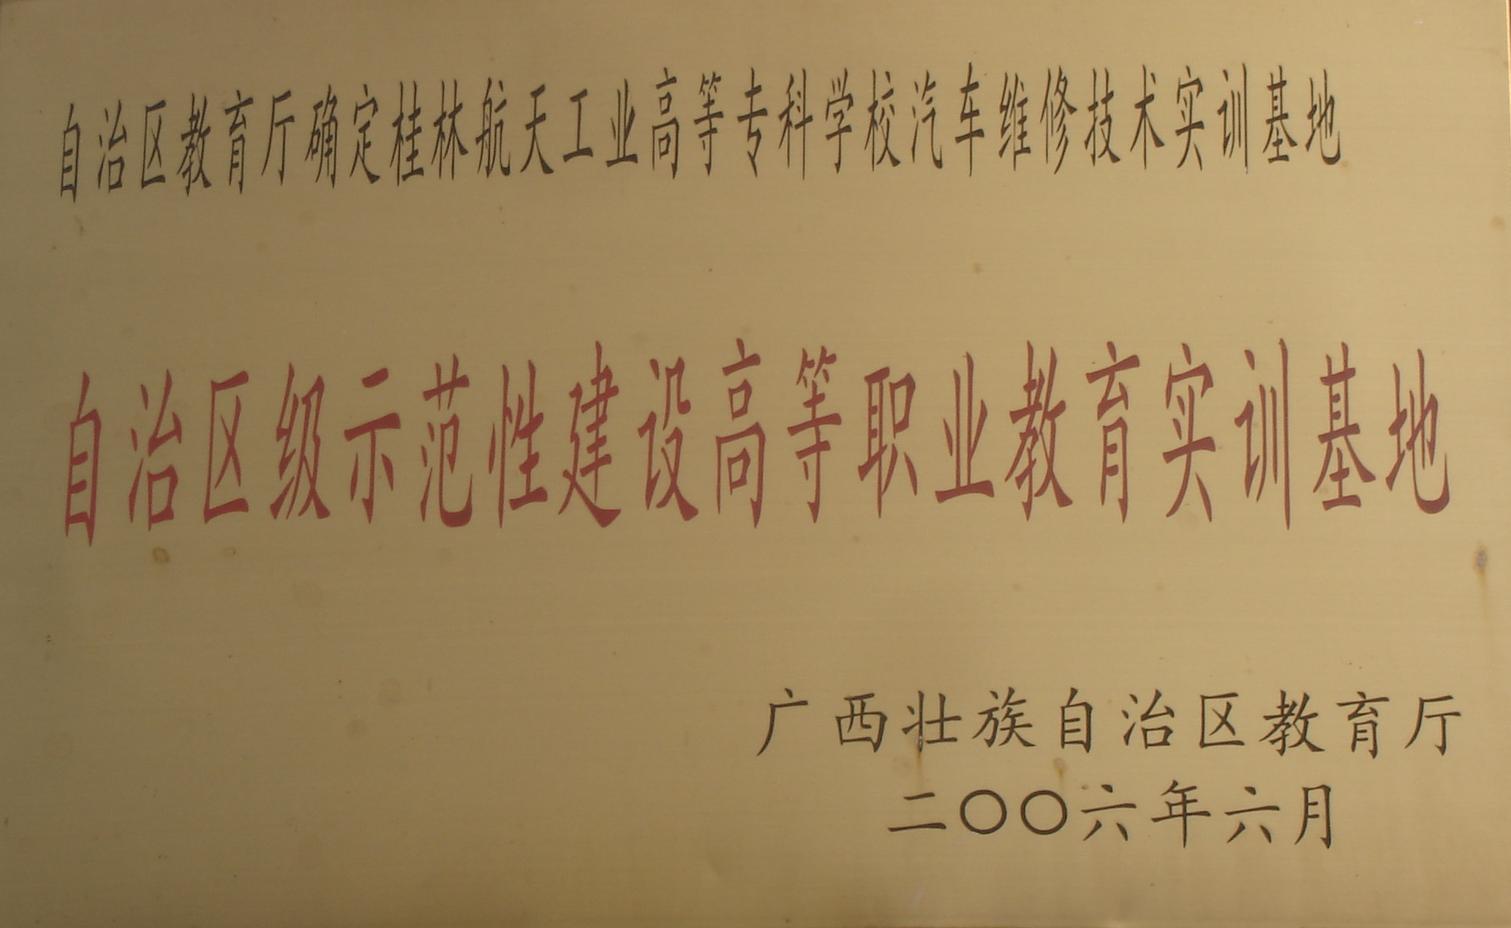 自治区教育厅确定桂林航天工业高等专科学校汽车维修技术实训基地
自治区级示范性建设高等职业教育实训基地
广西壮族自治区教育厅
二〇〇六年六月